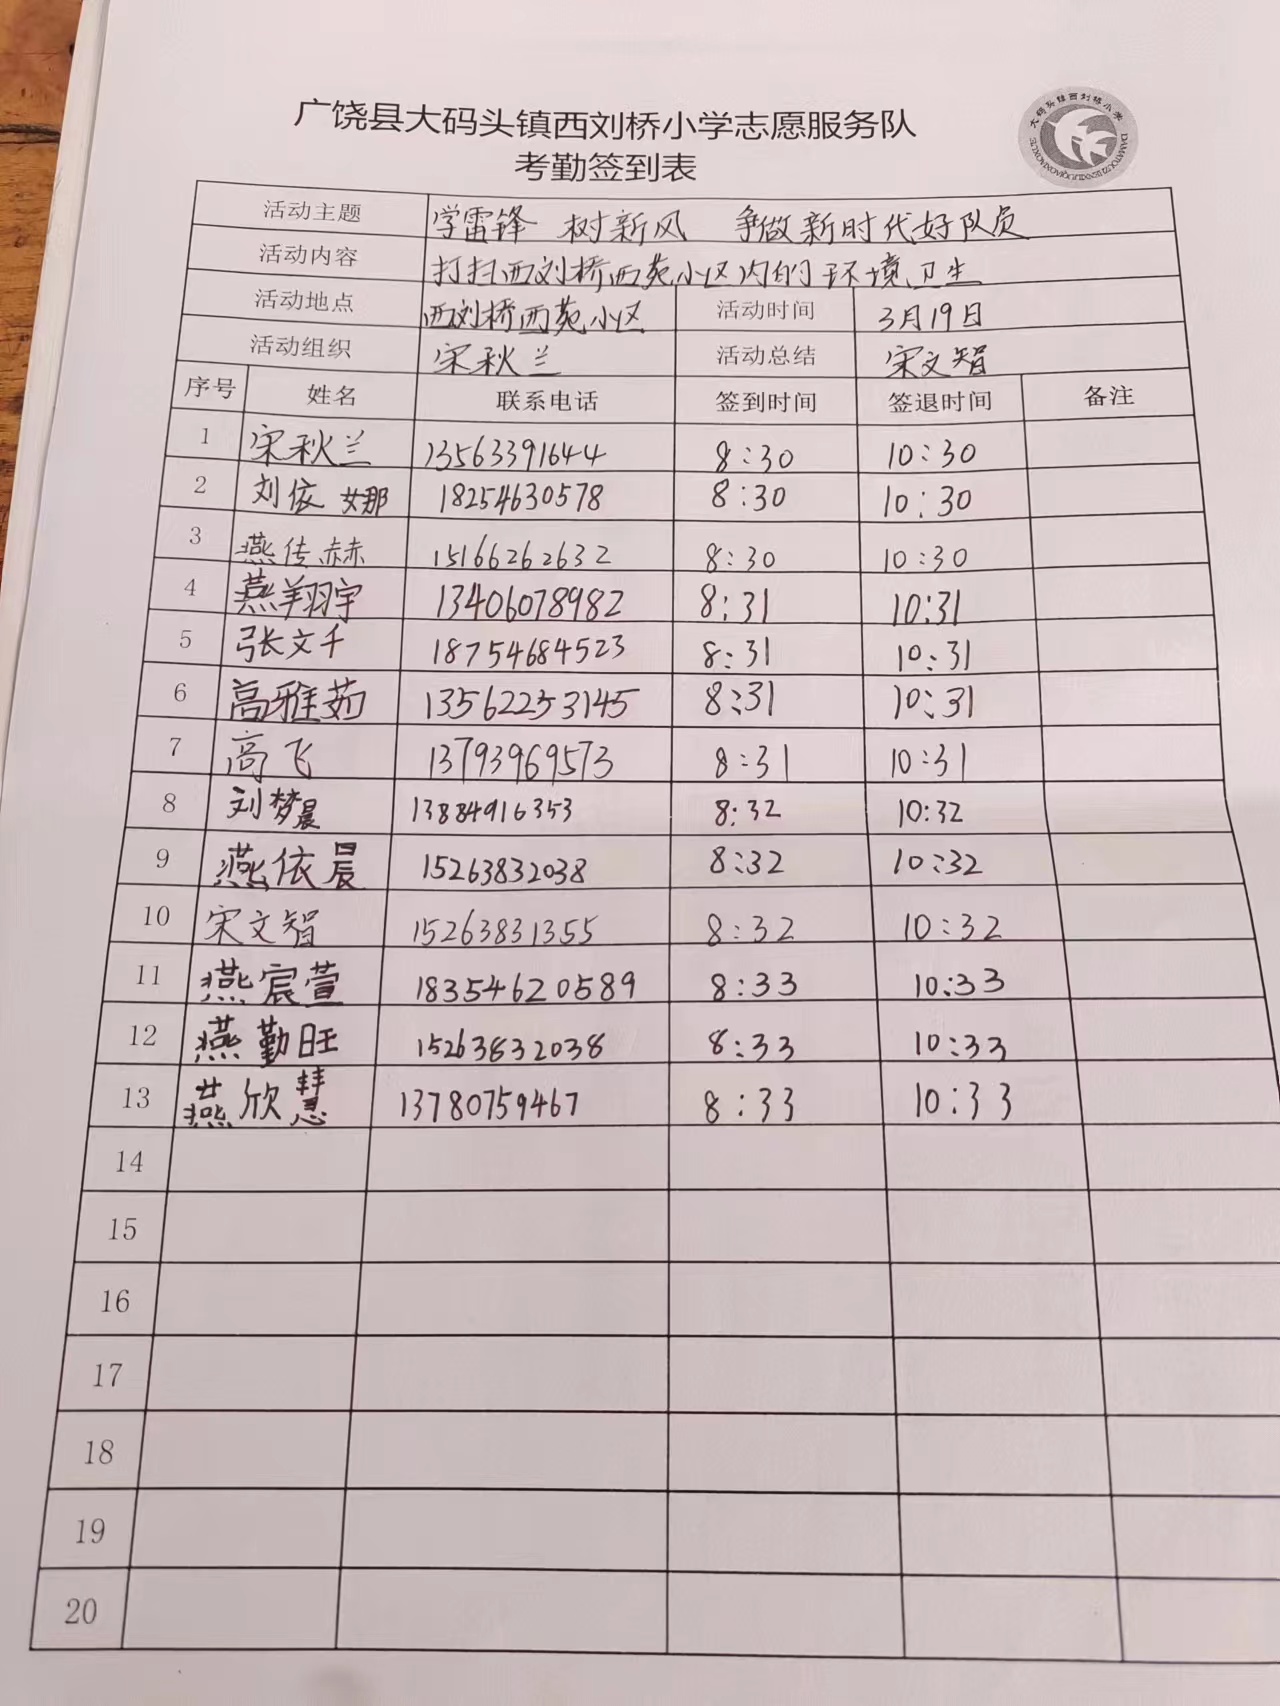 广饶县大码头镇西刘桥小学志愿服务队
考勤签到表
大码头镇西刘桥小学
活动主题 学雷锋 树新风 争做新时代好队员
活动内容 打扫西刘桥西苑小区内的环境卫生
活动地点 西刘桥西苑小区 活动时间 3月19日
活动组织 宋秋兰 活动总结 宋文智
序号 姓名 联系电话 签到时间 签退时间 备注
1 宋秋兰 13563391644 8:30 10:30
2 刘依娜 18254630578 8:30 10:30
3 燕传赫 15166262632 8:30 10:30
4 燕翔宇 13406078982 8:31 10:31
5 张文千 18754684523 8:31 10:31
6 高雅茹 13562253145 8:31 10:31
7 高飞 13793969573 8:31 10:31
8 刘梦晨 13884916353 8:32 10:32
9 燕依晨 15263832038 8:32 10:32
10 宋文智 15263831355 8:32 10:32
11 燕宸萱 18354620589 8:33 10:33
12 燕勤旺 15263832038 8:33 10:33
13 燕欣慧 13780759467 8:33 10:33
14
15
16
17
18
19
20